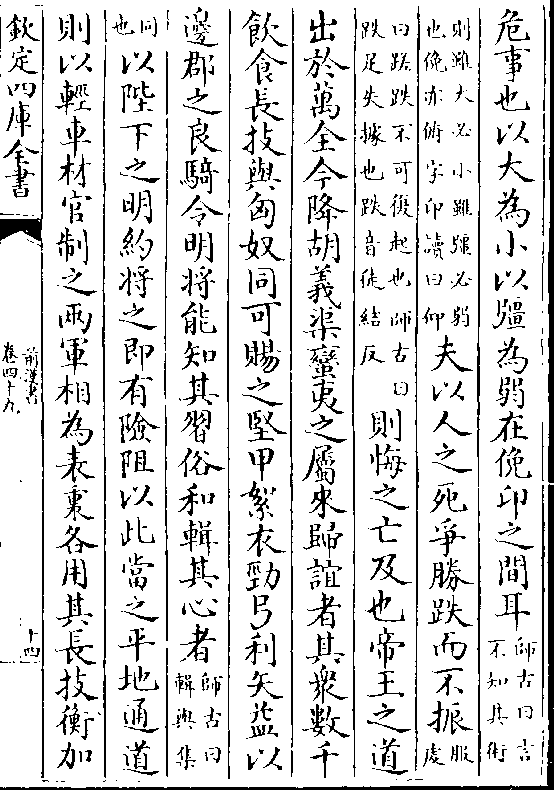 危事也以大為小以彊為弱在俛卬之間耳師古曰言不知其術
則雖大必小雖彊必弱也俛亦俯字卬讀曰仰夫以人之死爭勝跌而不振服虔
曰蹉跌不可復起也師古曰跌足失據也跌音徒結反則悔之亡及也帝王之道
出於萬全今降胡義渠蠻夷之屬來歸誼者其衆數千
飲食長技與匈奴同可賜之堅甲絮衣勁弓利矢益以
邊郡之良騎令明將能知其習俗和輯其心者師古曰輯與集
同也以陛下之明約將之即有險阻以此當之平地通道
則以輕車材官制之兩軍相為表裏各用其長技衡加
欽定四庫全書
前漢書
卷四十九
十四